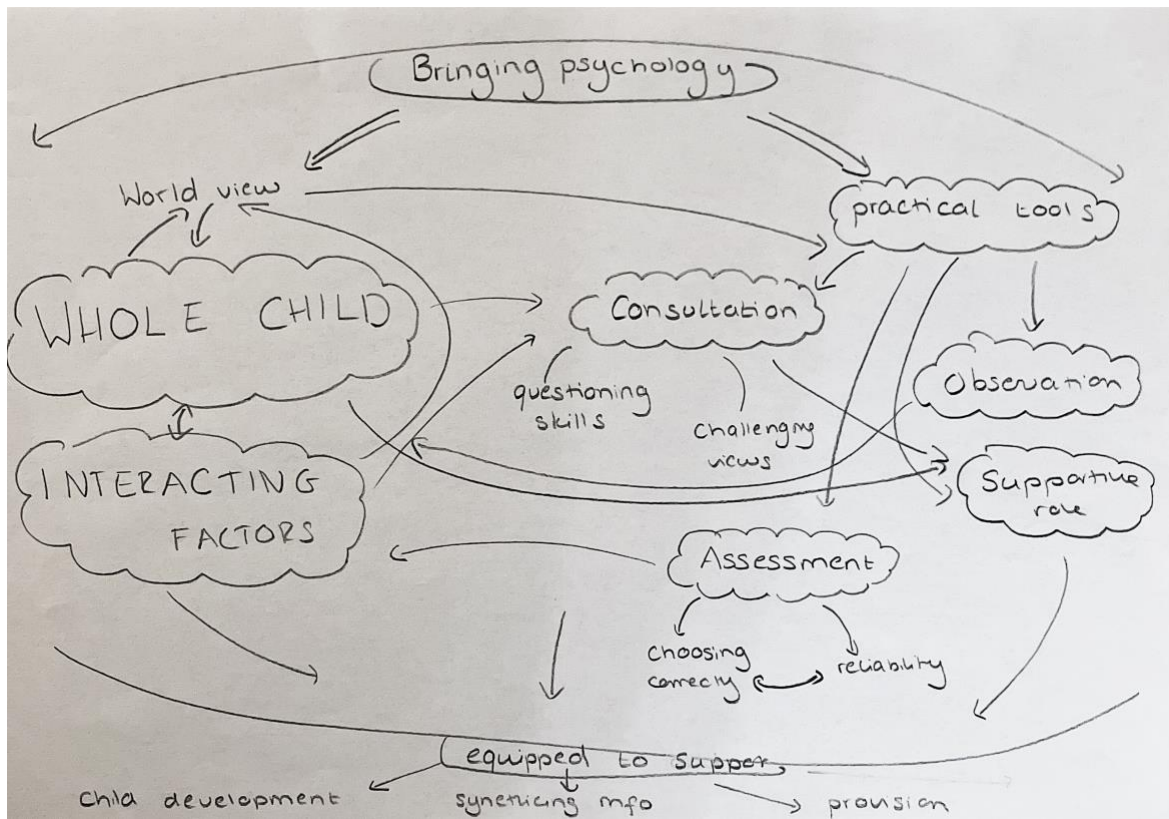 Bringing psychology
World view
practical tools
WHOLE CHILD
Consultation
questioning
skills
challenging
views
Observation
INTERACTING
FACTORS
Supportive
role
Assessment
choosing
correctly
reliability
equipped to support
child development
info
provision